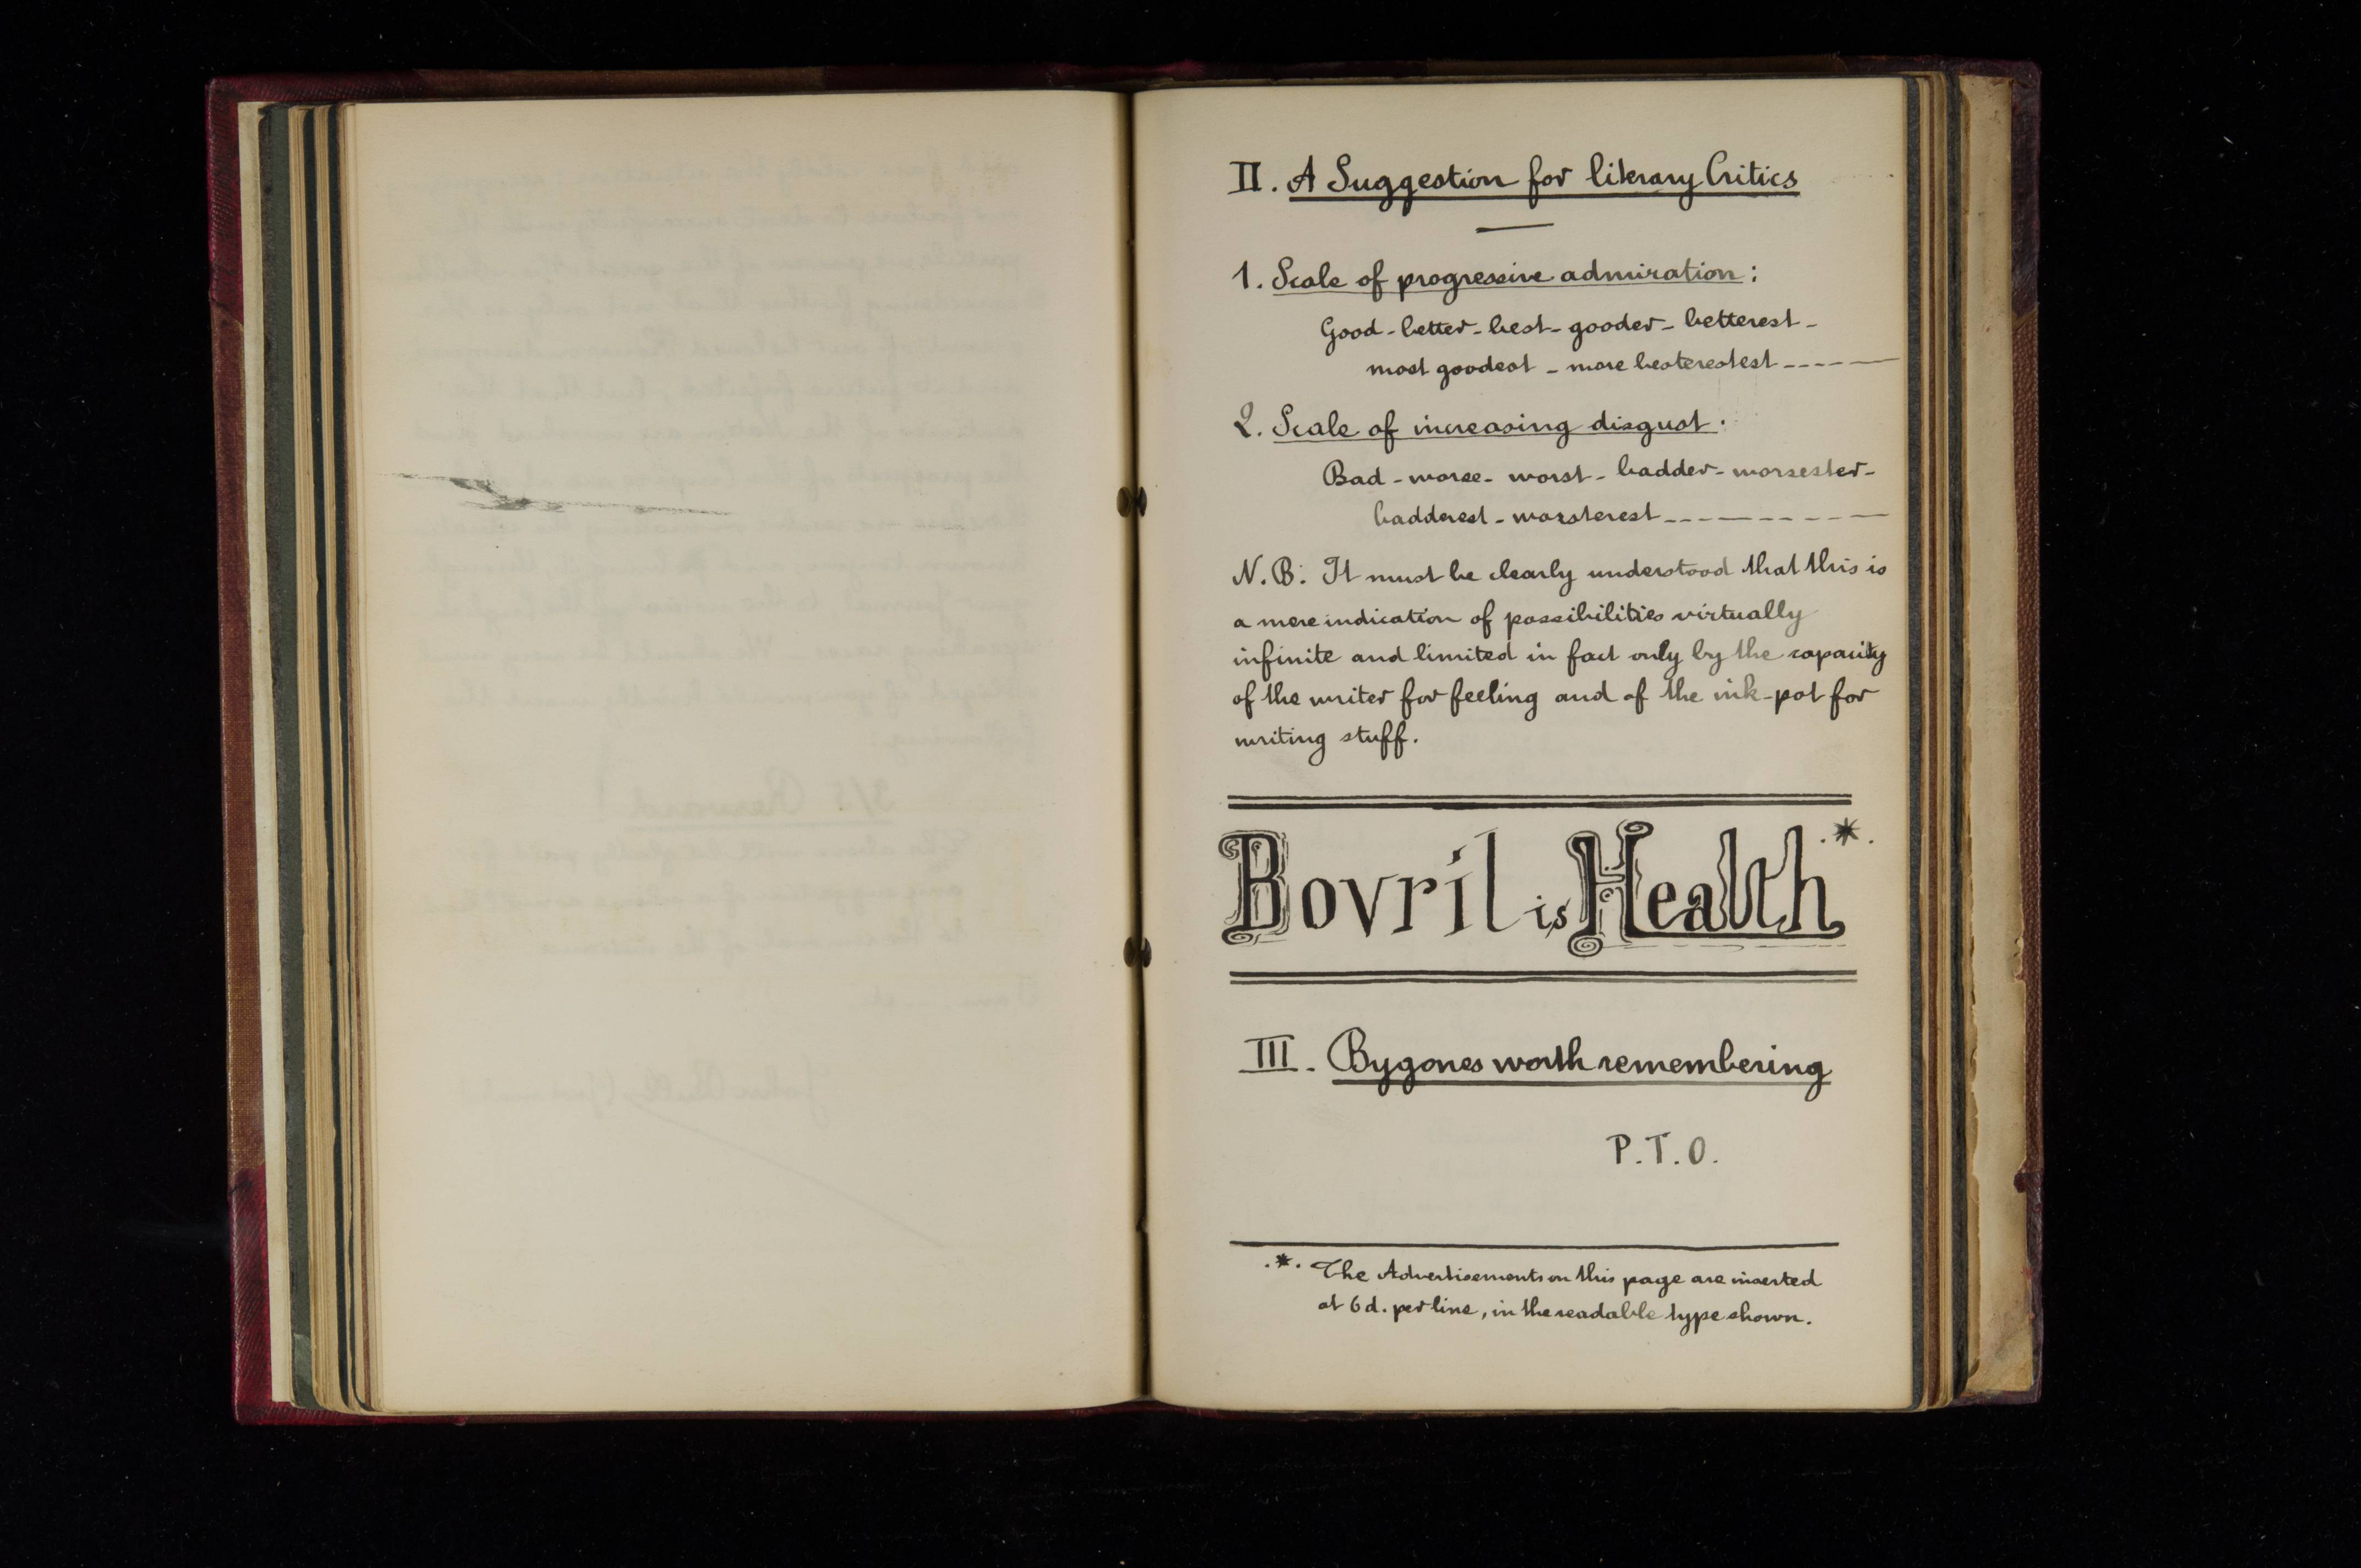 II. A Suggestion for literary Critics
1. Scale of progressive admiration:
Good - better - best - gooder - betterest -
most goodest - more besterestest
2. Scale of increasing disgust.
Bad - worse - worst - badder - worsester -
badderest - worsterest
N.B. It must be clearly understood that this is
a mere indication of possibilities virtually
infinite and limited in fact only by the capacity
of the writer for feeling and of the ink-pot for
writing stuff.
Bovril is Health .*.
III. Bygones worth remembering
P.T.O.
.*. The Advertisements on this page are inserted
at 6d. per line, in the readable type shown.